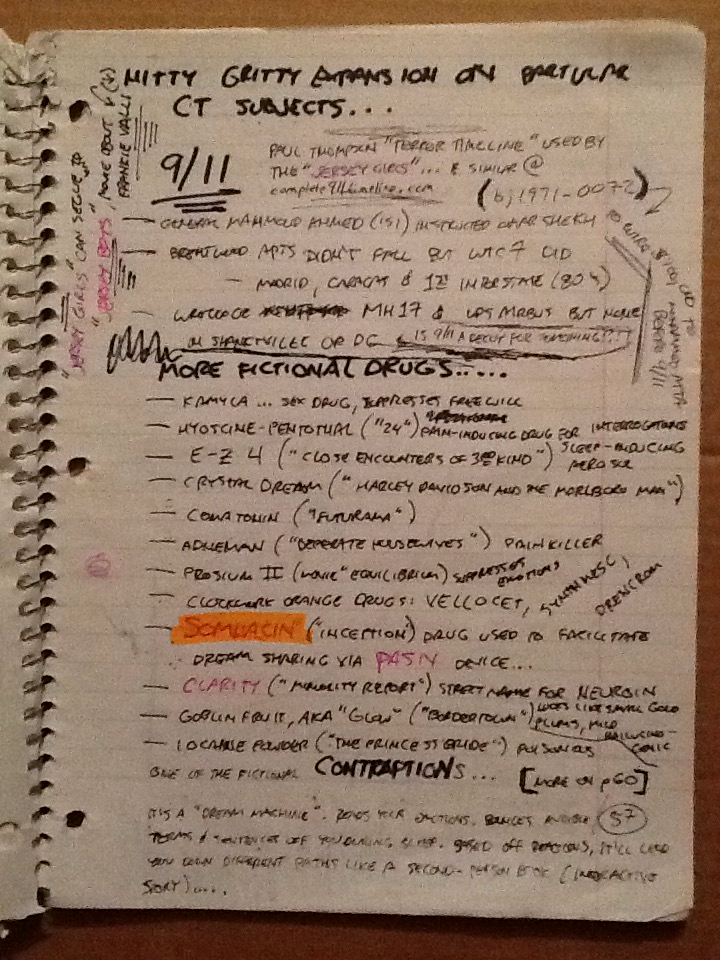 NITTY GRITTY EXPANSION ON PARTULAR
CT SUBJECTS...
9/11
PAUL THOMPSON "TERROR TIMELINE" USED BY
THE "JERSEY GIRLS"... & SIMILAR @
complete911timeline.com
(b, 1971-0072)
— GENERAL MAHMOUD AHMED (ISI) INSTRUCTED OMAR SHEIKH
TO WIRE $100,000 TO MOHAMMED ATTA BEFORE 9/11
— BRENTWOOD APTS DIDN'T FALL BUT WTC 7 DID
— MADRID, CARACAS & 1ST INTERSTATE (80s)
— WRECKAGE MH17 & BUT NONE
IN SHANKSVILLE OR DC & IS 9/11 A DECOY FOR SOMETHING?!?!
"JERSEY GIRLS" CAN SEGUE TO
"JERSEY BOYS"
MORE ABOUT
FRANKIE VALLI
MORE FICTIONAL DRUGS.....
— KAMYLA ... SEX DRUG, SUPPRESSES FREE WILL
— HYOSCINE-PENTOTHAL ("24") PAIN-INDUCING DRUG FOR INTERROGATIONS
— E-Z 4 ("CLOSE ENCOUNTERS OF 3RD KIND") SLEEP-INDUCING
AEROSOL
— CRYSTAL DREAM ("HARLEY DAVIDSON AND THE MORLBORO MAN")
— COMATONIN ("FUTURAMA")
— ADNEMAN ("DEPERATE HOUSEWIVES") PAINKILLER
— PROSIUM II (MOVIE "EQUILIBRIUM) SUPPRESSES
EMOTIONS
— CLOCKWORK ORANGE DRUGS: VELLOCET, SYNTHMESC, DRENCROM
— SOMNACIN ("INCEPTION) DRUG USED TO FACILITATE
DREAM SHARING VIA PASIV DEVICE...
— CLARITY ("MINORITY REPORT") STREET NAME FOR NEUROIN
— GOBLIN FRUIT, AKA "GLOW" ("BORDERTOWN") LOOKS LIKE SMALL GOLD
PLUMS, MILD HALLUCINO-
GENIC
— LOCANE POWDER ("THE PRINCESS BRIDE") POISONOUS
ONE OF THE FICTIONAL CONTRAPTIONS... [MORE ON p60]
IT'S A "DREAM MACHINE". READS YOUR EMOTIONS. BOUNCES AUDIBLE
57
TERMS & SENTENCES OFF YOU DURING SLEEP. BASED OFF REACTIONS, IT'LL LEAD
YOU DOWN DIFFERENT PATHS LIKE A SECOND-PERSON BOOK (INTERACTIVE
STORY)....